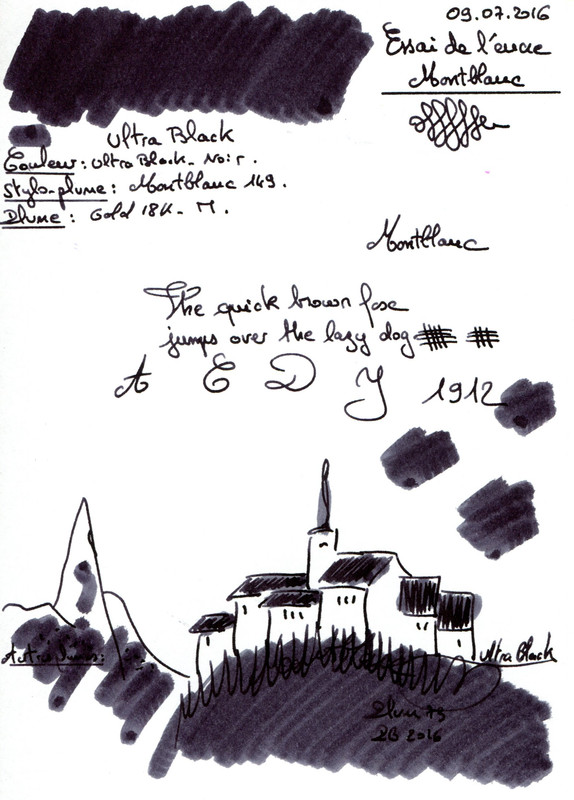 09.07.2016
Essai de l'encre
Montblanc
Ultra Black
Couleur : Ultra Black - Noir.
Stylo-plume : Montblanc 149.
Plume : Gold 18K - M.
Montblanc
The quick brown foxe
jumps over the lazy dog
A E D Y 1912
Ultra Black
2016